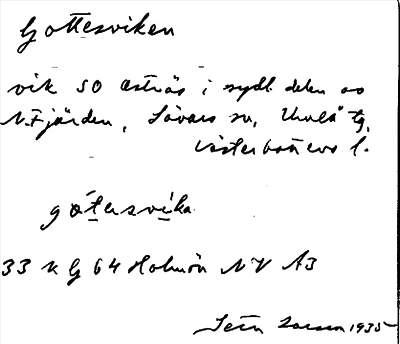 Gottesviken
vik SO Österås i sydl. delen av
N. Fjärden, Sävars sn, Umeå tg,
Västerbottens l.
gòtersvika
33 K G 64 Holmön NV A3
Sein Larsson 1935